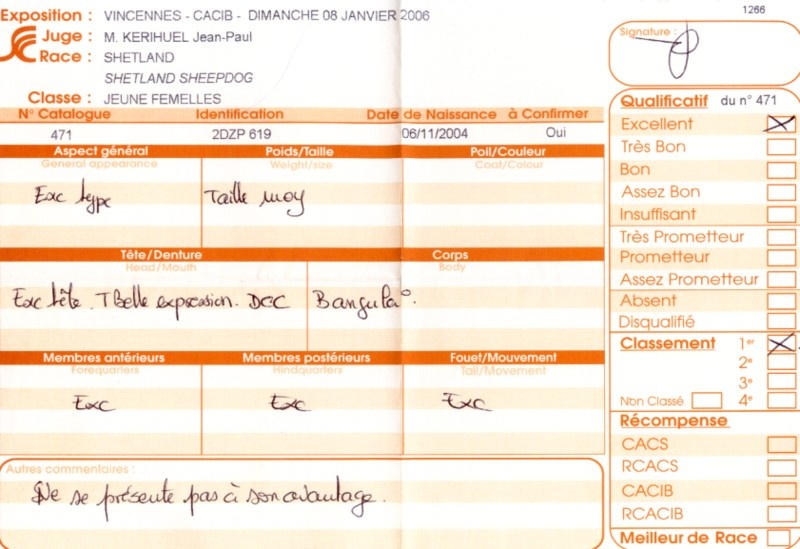 1266
Exposition : VINCENNES - CACIB - DIMANCHE 08 JANVIER 2006
Juge : M. KERIHUEL Jean-Paul
Race : SHETLAND
SHETLAND SHEEPDOG
Classe : JEUNE FEMELLES
Signature :
N° Catalogue Identification Date de Naissance à Confirmer
471 2DZP 619 06/11/2004 Oui
Aspect général Poids/Taille Poil/Couleur
General appearance Weight/size Coat/Colour
Exc type Taille moy
Tête/Denture Corps
Head/Mouth Body
Exc tête. TBelle expression. DCC B angula°.
Membres antérieurs Membres postérieurs Fouet/Mouvement
Forequarters Hindquarters Tail/Movement
Exc Exc Exc
Autres commentaires :
Ne se présente pas à son avantage.
Qualificatif du n° 471
Excellent
Très Bon
Bon
Assez Bon
Insuffisant
Très Prometteur
Prometteur
Assez Prometteur
Absent
Disqualifié
Classement 1er
2e
3e
Non Classé 4e
Récompense
CACS
RCACS
CACIB
RCACIB
Meilleur de Race